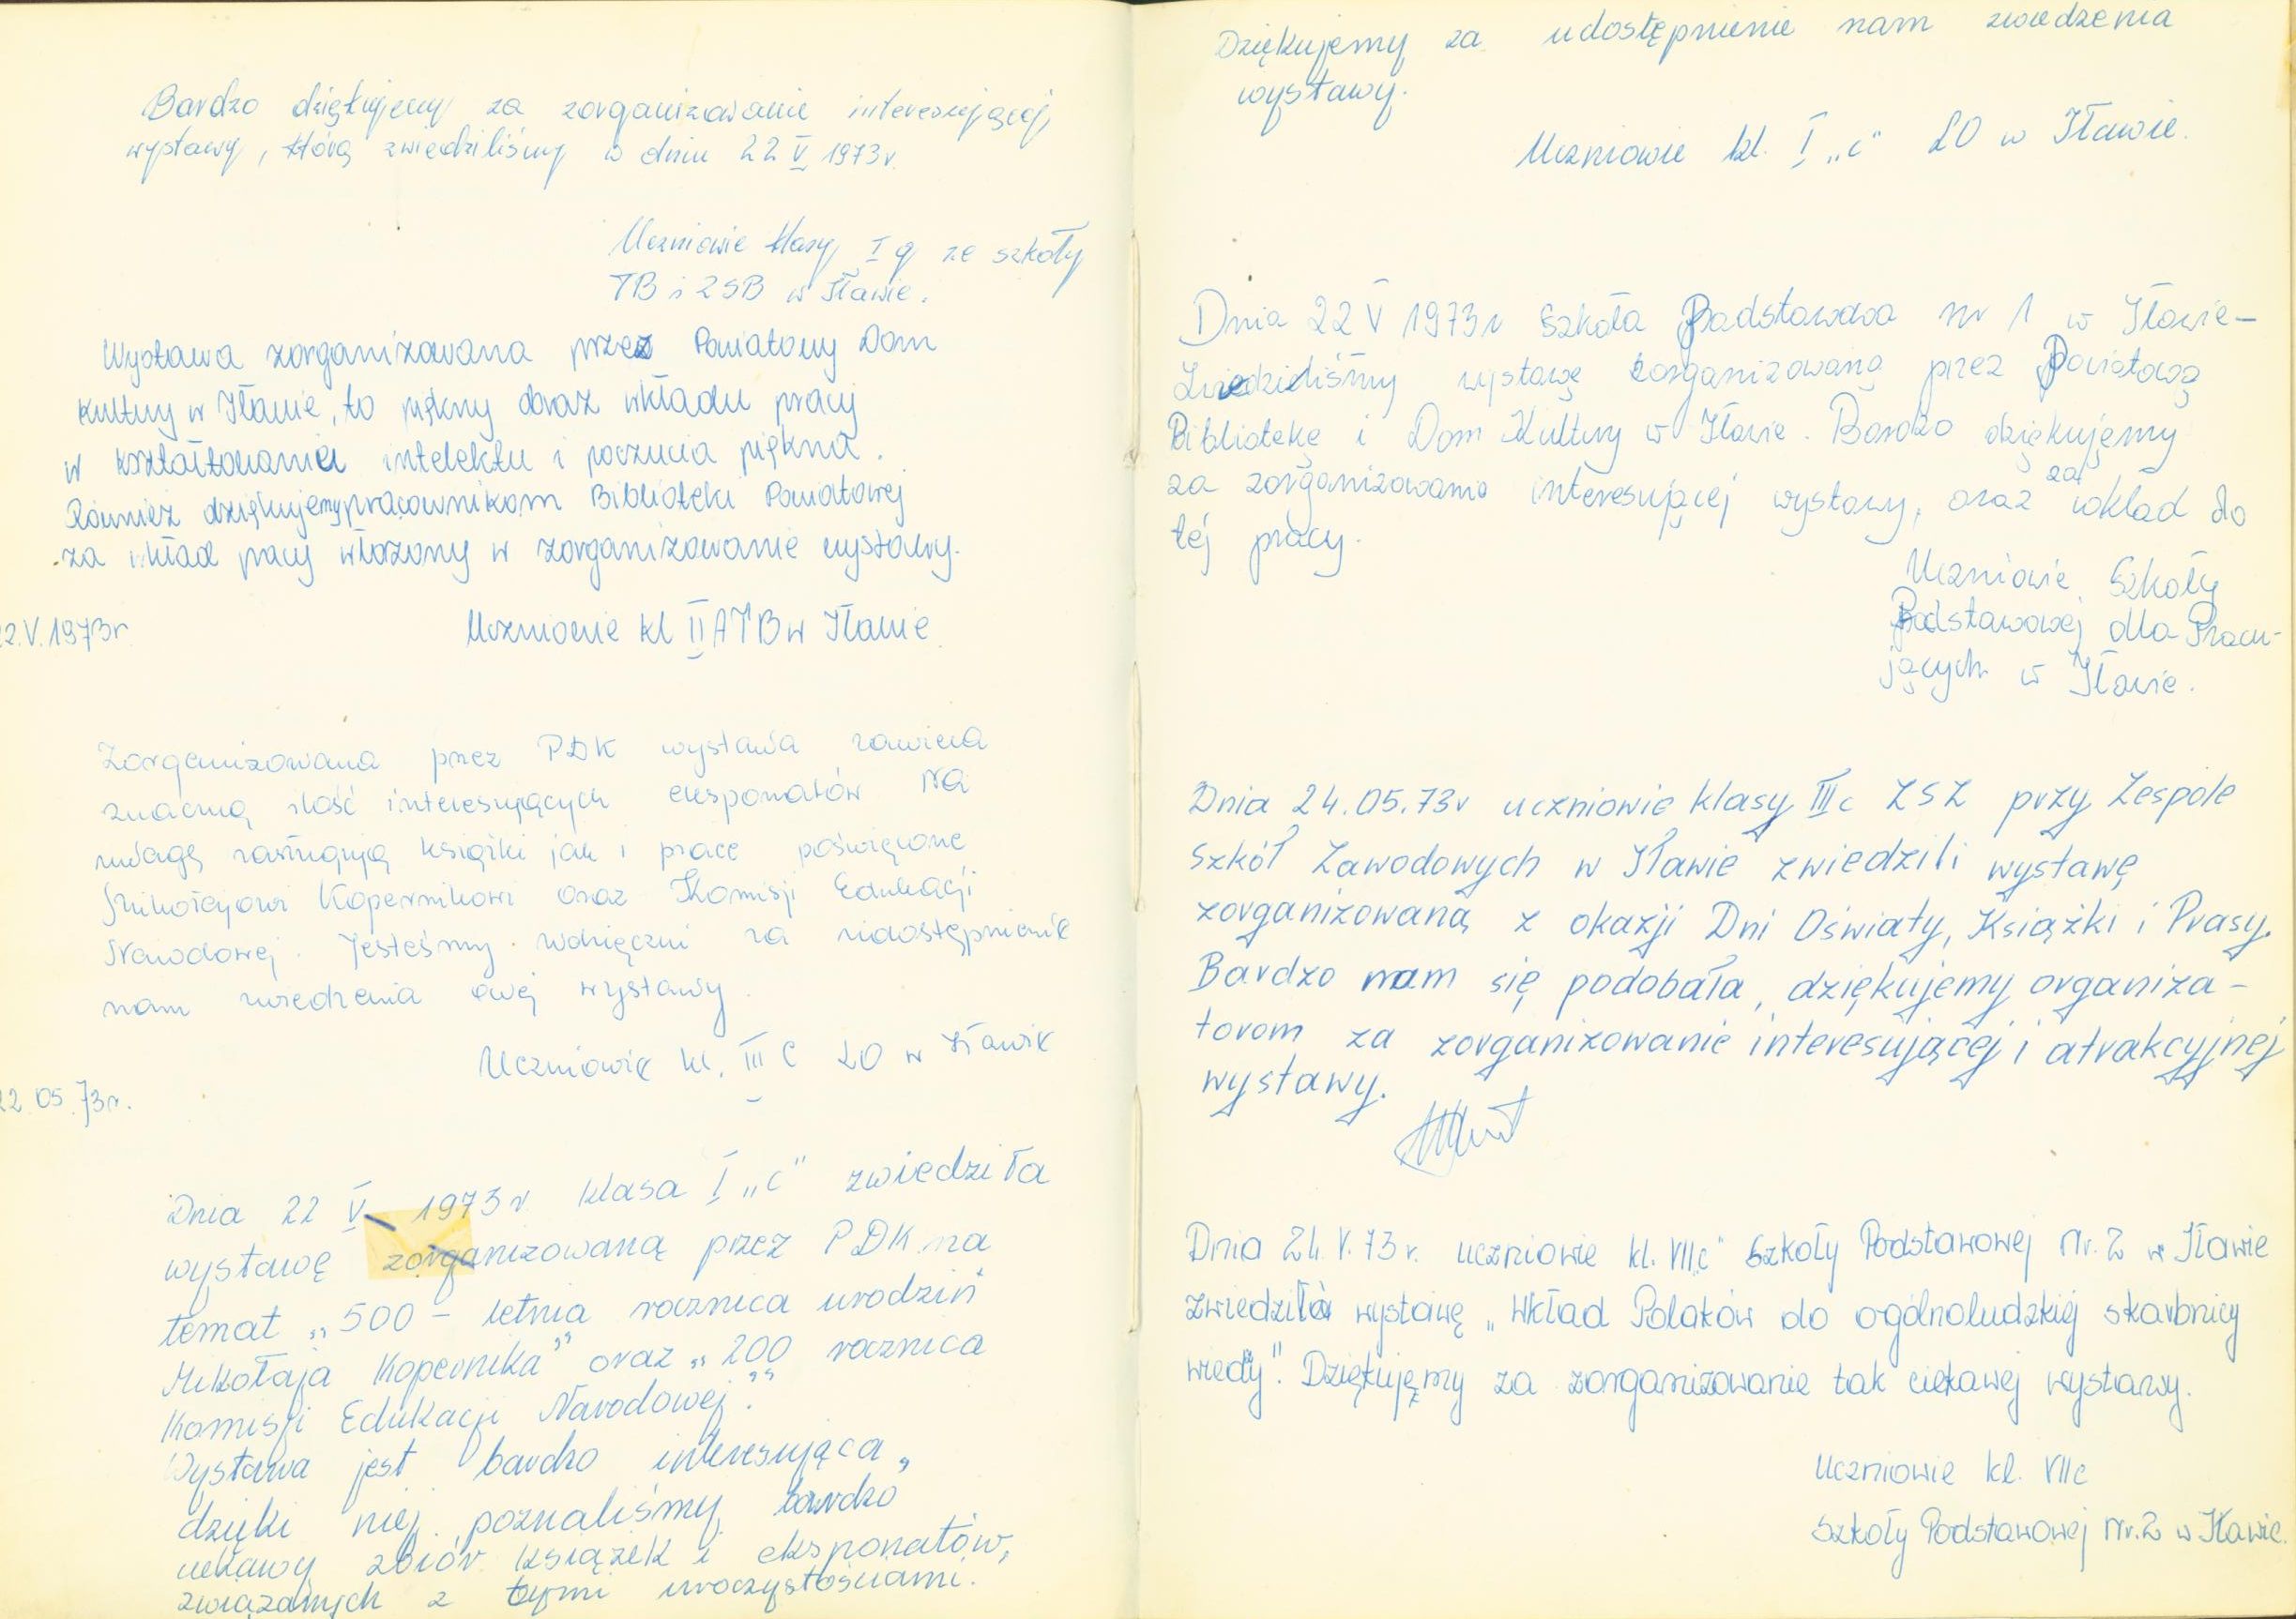 Bardzo dziękujemy za zorganizowanie interesującej
wystawy, którą zwiedziliśmy w dniu 22 V 1973r.
Uczniowie klasy I g ze szkoły
TB i ZSB w Iławie.
Wystawa zorganizowana przez Powiatowy Dom
Kultury w Iławie, to piękny obraz wkładu pracy
w kształtowaniu intelektu i poczucia piękna.
Również dziękujemy pracownikom Biblioteki Powiatowej
za wkład pracy włożony w zorganizowanie wystawy.
22.V.1973r
Uczniowie kl II A TB w Iławie.
Zorganizowana przez PDK wystawa zawiera
znaczną ilość interesujących eksponatów Na
uwagę zasługują książki jak i prace poświęcone
Mikołajowi Kopernikowi oraz Komisji Edukacji
Narodowej. Jesteśmy wdzięczni za udostępnienie
nam zwiedzenia owej wystawy.
Uczniowie kl. III C LO w Iławie
22.05.73r.
Dnia 22 V 1973r klasa I „c" zwiedziła
wystawę zorganizowaną przez PDK na
temat „500 - letnia rocznica urodzin
Mikołaja Kopernika" oraz „200 rocznica
Komisji Edukacji Narodowej."
Wystawa jest bardzo interesująca,
dzięki niej poznaliśmy bardzo
ciekawy zbiór książek i eksponatów,
związanych z tymi uroczystościami.
Dziękujemy za udostępnienie nam zwiedzenia
wystawy.
Uczniowie kl. I „c" LO w Iławie.
Dnia 22 V 1973r Szkoła Podstawowa nr 1 w Iławie -
Zwiedziliśmy wystawę zorganizowaną przez Powiatową
Bibliotekę i Dom Kultury w Iławie. Bardzo dziękujemy
za zorganizowanie interesującej wystawy, oraz za wkład do
tej pracy.
Uczniowie Szkoły
Podstawowej dla Pracu-
jących w Iławie.
Dnia 24.05.73r uczniowie klasy III c ZSZ przy Zespole
Szkół Zawodowych w Iławie zwiedzili wystawę
zorganizowaną z okazji Dni Oświaty, Książki i Prasy.
Bardzo nam się podobała, dziękujemy organiza-
torom za zorganizowanie interesującej i atrakcyjnej
wystawy.
Dnia 24.V.73r. uczniowie kl. VII„c" Szkoły Podstawowej Nr. 2 w Iławie
zwiedziła wystawę „Wkład Polaków do ogólnoludzkiej skarbnicy
wiedzy". Dziękujęmy za zorganizowanie tak ciekawej wystawy.
Uczniowie kl. VIIc
Szkoły Podstawowej Nr. 2 w Iławie.